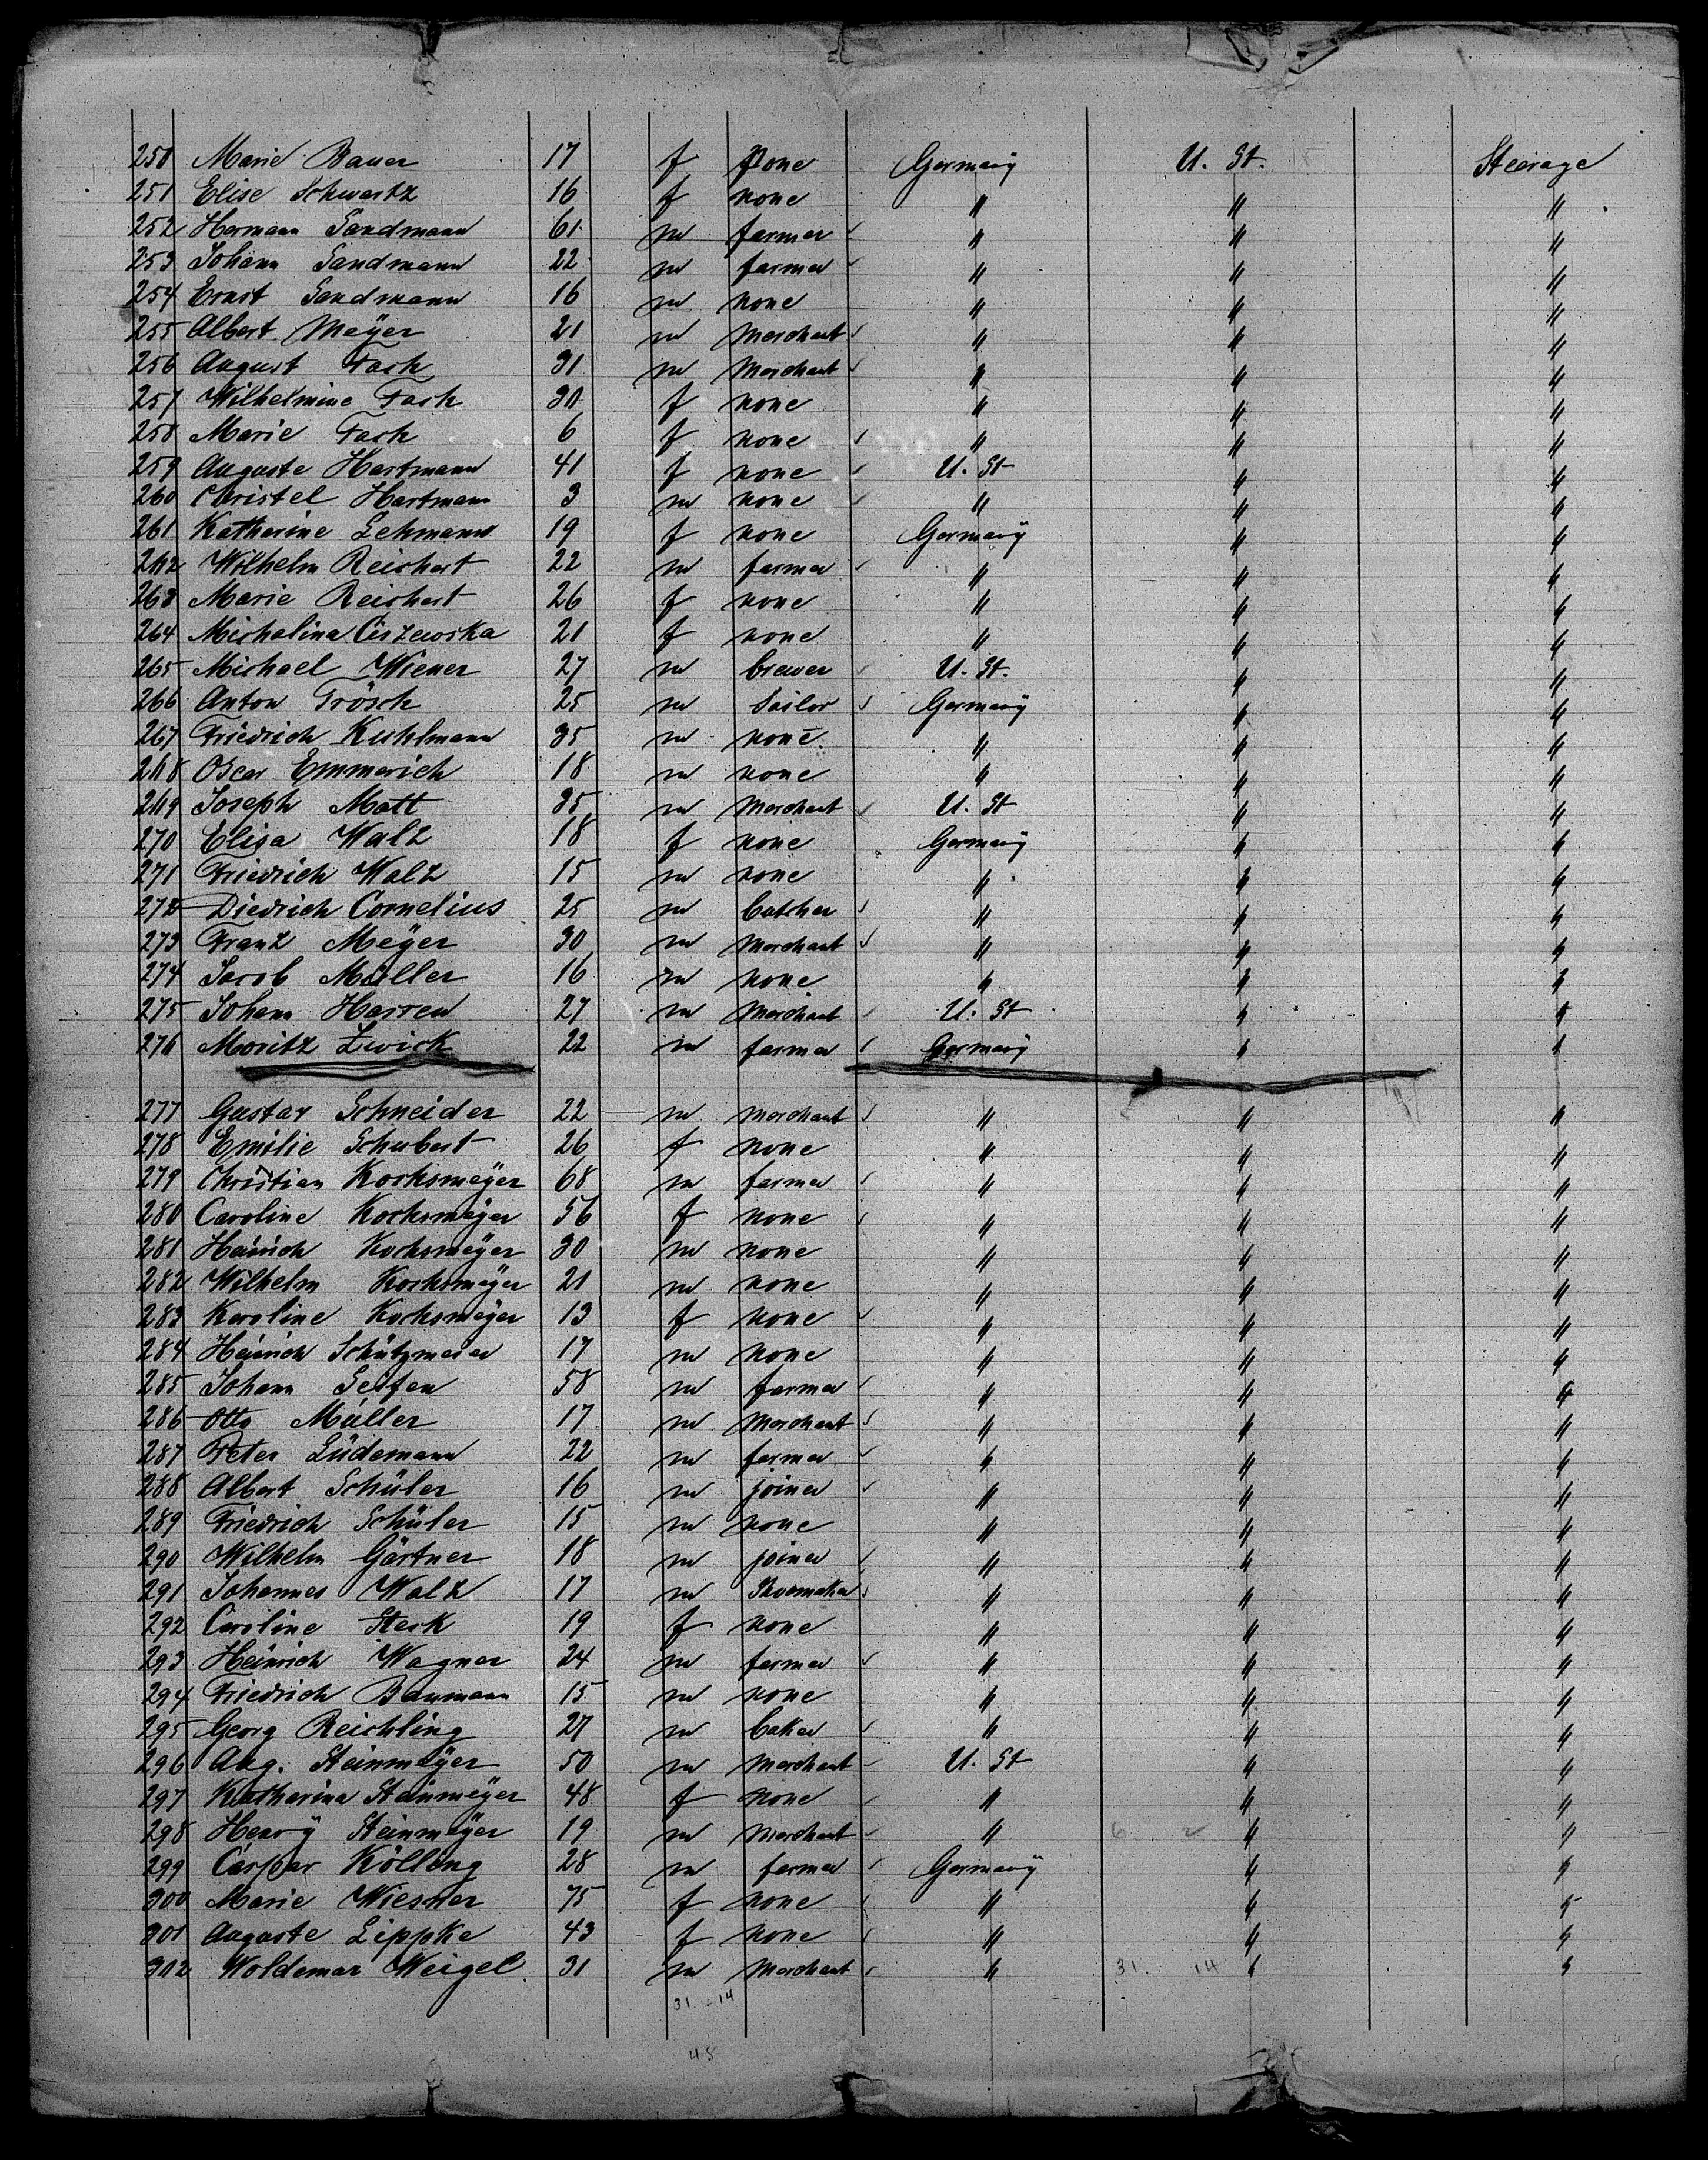 250 Marie Bauer 17 f none Germany U. St. Steerage
251 Elise Schwartz 16 f none " " "
252 Hermann Sandmann 61 m farmer " " "
253 Johann Sandmann 22 m farmer " " "
254 Ernst Sandmann 16 m none " " "
255 Albert Meÿer 21 m Merchant " " "
256 August Fach 31 m Merchant " " "
257 Wilhelmine Fach 30 f none " " "
258 Marie Fach 6 f none " " "
259 Auguste Hartmann 41 f none U. St " "
260 Christel Hartmann 3 m none " " "
261 Katharine Lehmann 19 f none Germanÿ " "
262 Wilhelm Reichert 22 m farmer " " "
263 Marie Reichert 26 f none " " "
264 Michalina Ciszewska 21 f none " " "
265 Michael Wiener 27 m brewer U. St. " "
266 Anton Frösch 25 m Sailor Germanÿ " "
267 Friedrich Kuhlmann 35 m none " " "
268 Oscar Emmerich 18 m none " " "
269 Joseph Matt 35 m Merchant U. St " "
270 Elisa Walz 18 f none Germanÿ " "
271 Friedrich Walz 15 m none " " "
272 Diedrich Cornelius 25 m butcher " " "
273 Franz Meÿer 30 m Merchant " " "
274 Jacob Müller 16 m none " " "
275 Johann Harren 27 m Merchant U. St " "
276 Moritz Zwick 22 m farmer Germanÿ " "
277 Gustav Schneider 22 m Merchant " " "
278 Emilie Schubert 26 f none " " "
279 Christian Kocksmeÿer 68 m farmer " " "
280 Caroline Kocksmeÿer 56 f none " " "
281 Heinrich Kocksmeÿer 30 m none " " "
282 Wilhelm Kocksmeÿer 21 m none " " "
283 Karoline Kocksmeÿer 13 f none " " "
284 Heinrich Schützmeier 17 m none " " "
285 Johann Seifen 58 m farmer " " "
286 Otto Müller 17 m Merchant " " "
287 Peter Lüdemann 22 m farmer " " "
288 Albert Schüler 16 m joiner " " "
289 Friedrich Schüler 15 m none " " "
290 Wilhelm Gärtner 18 m joiner " " "
291 Johannes Walz 17 m Shoemaker " " "
292 Caroline Steck 19 f none " " "
293 Heinrich Wagner 24 m farmer " " "
294 Friedrich Baumann 15 m none " " "
295 Georg Reichling 27 m baker " " "
296 Aug. Steinmeÿer 50 m Merchant U. St " "
297 Katharina Steinmeÿer 48 f none " " "
298 Henrÿ Steinmeÿer 19 m Merchant " 6 2 " "
299 Caspar Kölling 28 m farmer Germanÿ " "
300 Marie Wiesner 75 f none " " "
301 Auguste Lippke 43 f none " " "
302 Woldemar Weigel 31 m Merchant " 31 14 " "
31 - 14
45